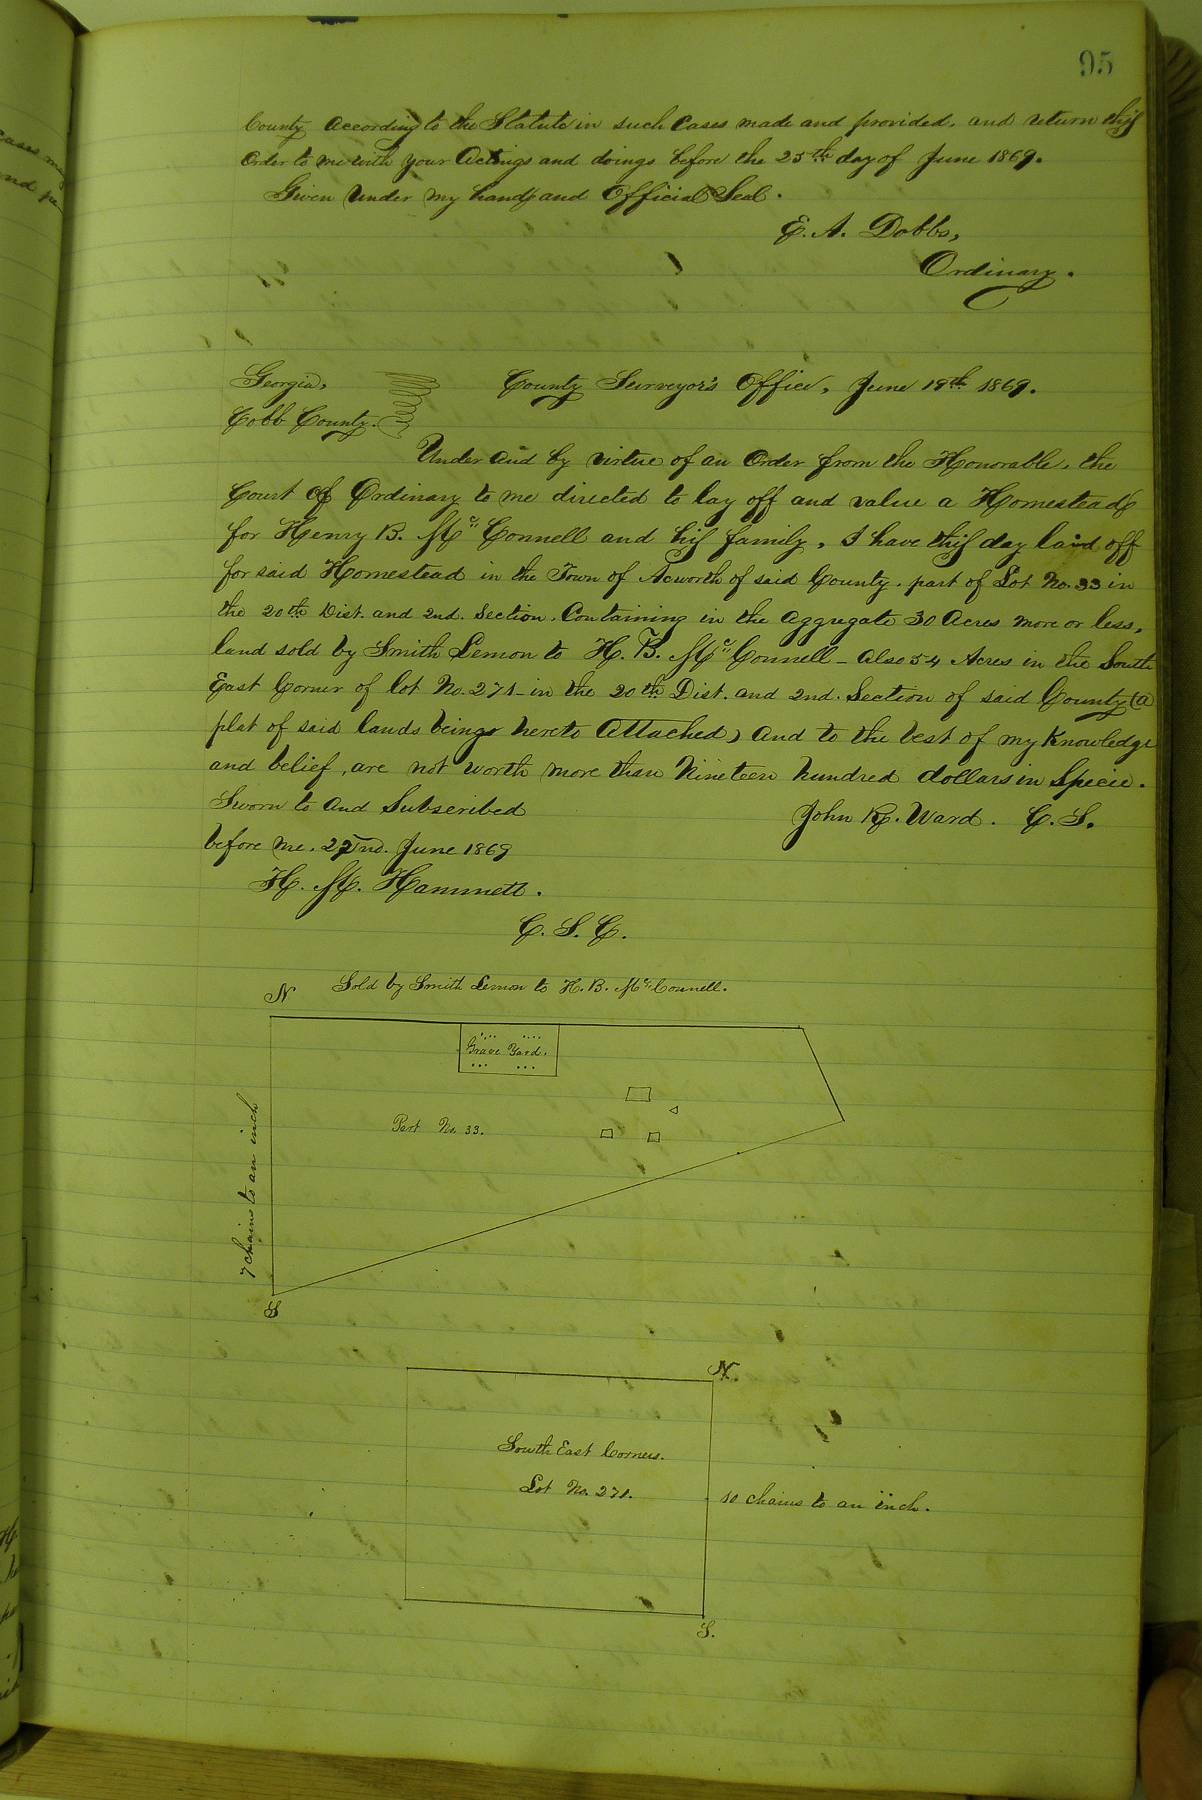 95
County according to the Statute in such Cases made and provided, and return this
Order to me with your Actings and doings before the 25th day of June 1869.
Given under my hand and Official Seal.
E. A. Dobbs,
Ordinary.
Georgia, County Surveyor's Office, June 19th 1869.
Cobb County.
Under and by virtue of an Order from the Honorable, the
Court of Ordinary to me directed to lay off and value a Homestead
for Henry B. McConnell and his family, I have this day laid off
for said Homestead in the Town of Acworth of said County. part of Lot No. 33 in
the 20th Dist. and 2nd. Section. Containing in the aggregate 30 Acres more or less,
land sold by Smith Lemon to H. B. McConnell - Also 54 Acres in the South
East Corner of lot No. 271 - in the 20th Dist. and 2nd. Section of said County (a
plat of said lands being hereto Attached) And to the best of my Knowledge
and belief, are not worth more than Nineteen hundred dollars in Specie.
Sworn to and Subscribed John R. Ward. C. S.
before me. 22nd. June 1869
H. M. Hammett.
C. S. C.
N Sold by Smith Lemon to H. B. McConnell.
Grave Yard.
Part No. 33.
7 chains to an inch
S
N.
South East Corner.
Lot No. 271.
10 chains to an inch.
S.